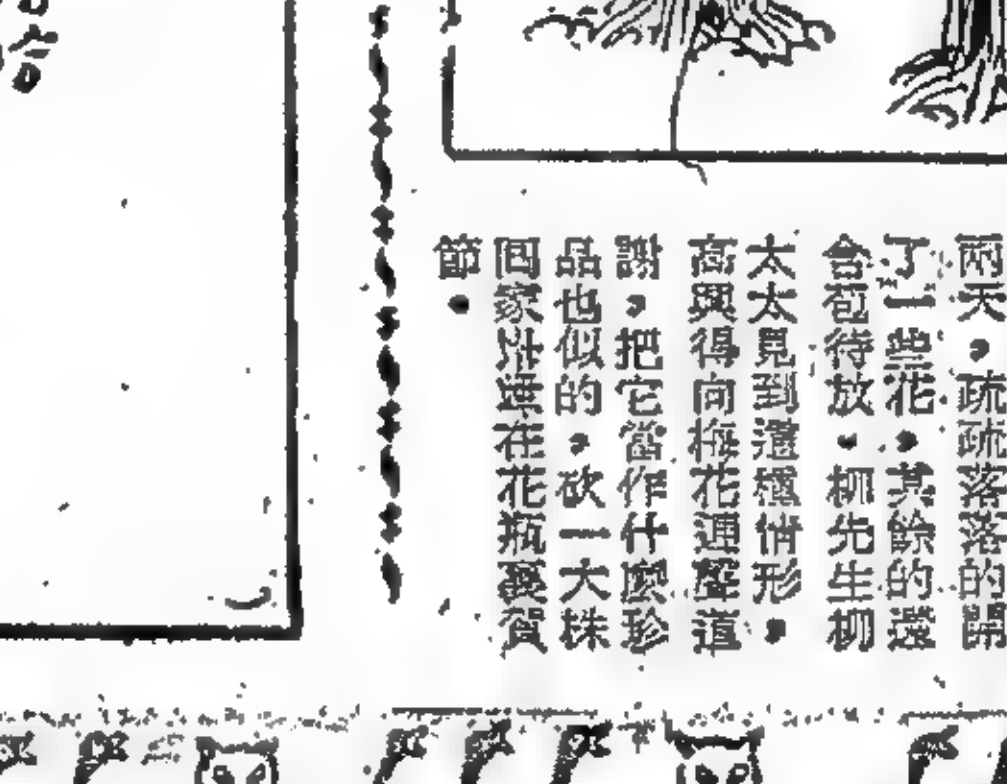 兩天，疏疏落落的開
了一些花，其餘的還
含苞待放，柳先生柳
太太見到這種情形，
高興得向梅花連聲道
謝，把它當作什麼珍
品也似的，砍一大株
回家供養在花瓶裏賀
節。